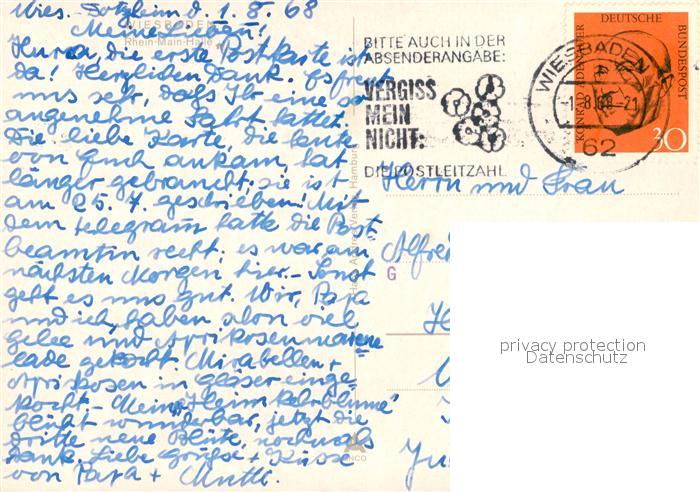 Wies.-Dotzheim d. 1.8.68
WIESBADEN
Meine Lieben!
Rhein-Main-Halle
Hurra, die erste Postkarte ist
da! Herzlichen Dank. Es freut
uns sehr, daß Ihr eine so
angenehme Fahrt hattet.
Die liebe Karte, die heute
von Euch ankam, hat
länger gebraucht, sie ist
am 25. 7. geschrieben! Mit
dem Telegramm hatte die Post-
beamtin recht, es war am
nächsten Morgen hier. - Sonst
geht es uns gut. Wir, Papa
und ich, haben schon viel
Gelee und Aprikosenmarme=
lade gekocht. Mirabellen +
Aprikosen in Gläser einge=
kocht. - Meine "Heimkehrblume"
blüht wunderbar, jetzt die
dritte neue Blüte, nochmals
Dank. Liebe Grüße + Küsse
von Papa + Mutti.
BITTE AUCH IN DER
ABSENDERANGABE:
VERGISS
MEIN
NICHT:
DIE POSTLEITZAHL
WIESBADEN
-1.-8.68-21
62
DEUTSCHE
BUNDESPOST
KONRAD ADENAUER
30
Herrn und Frau
Alfre
G
privacy protection
Datenschutz